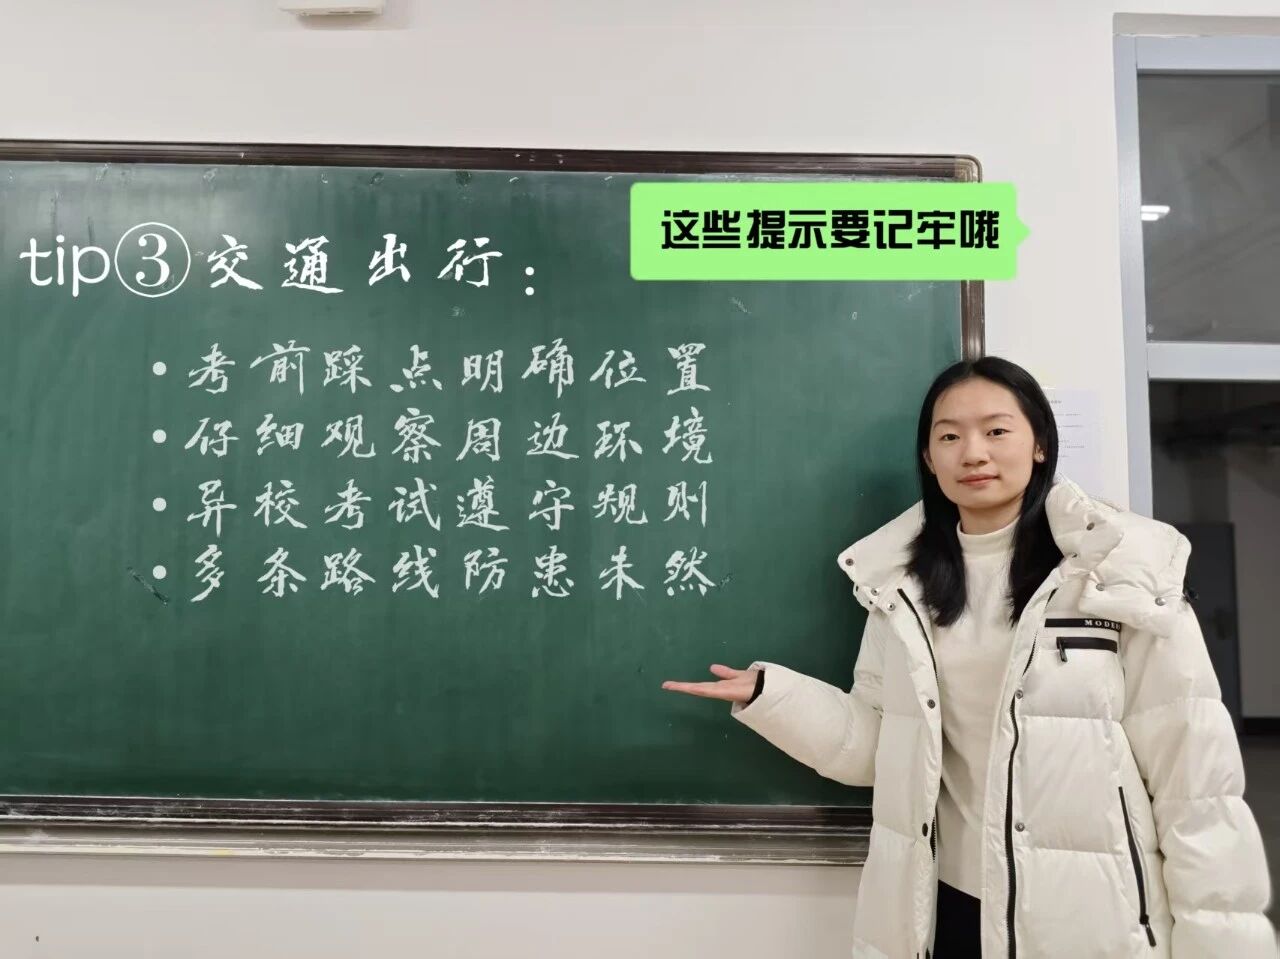 tip③交通出行：
这些提示要记牢哦
• 考前踩点明确位置
• 仔细观察周边环境
• 异校考试遵守规则
• 多条路线防患未然
MODE